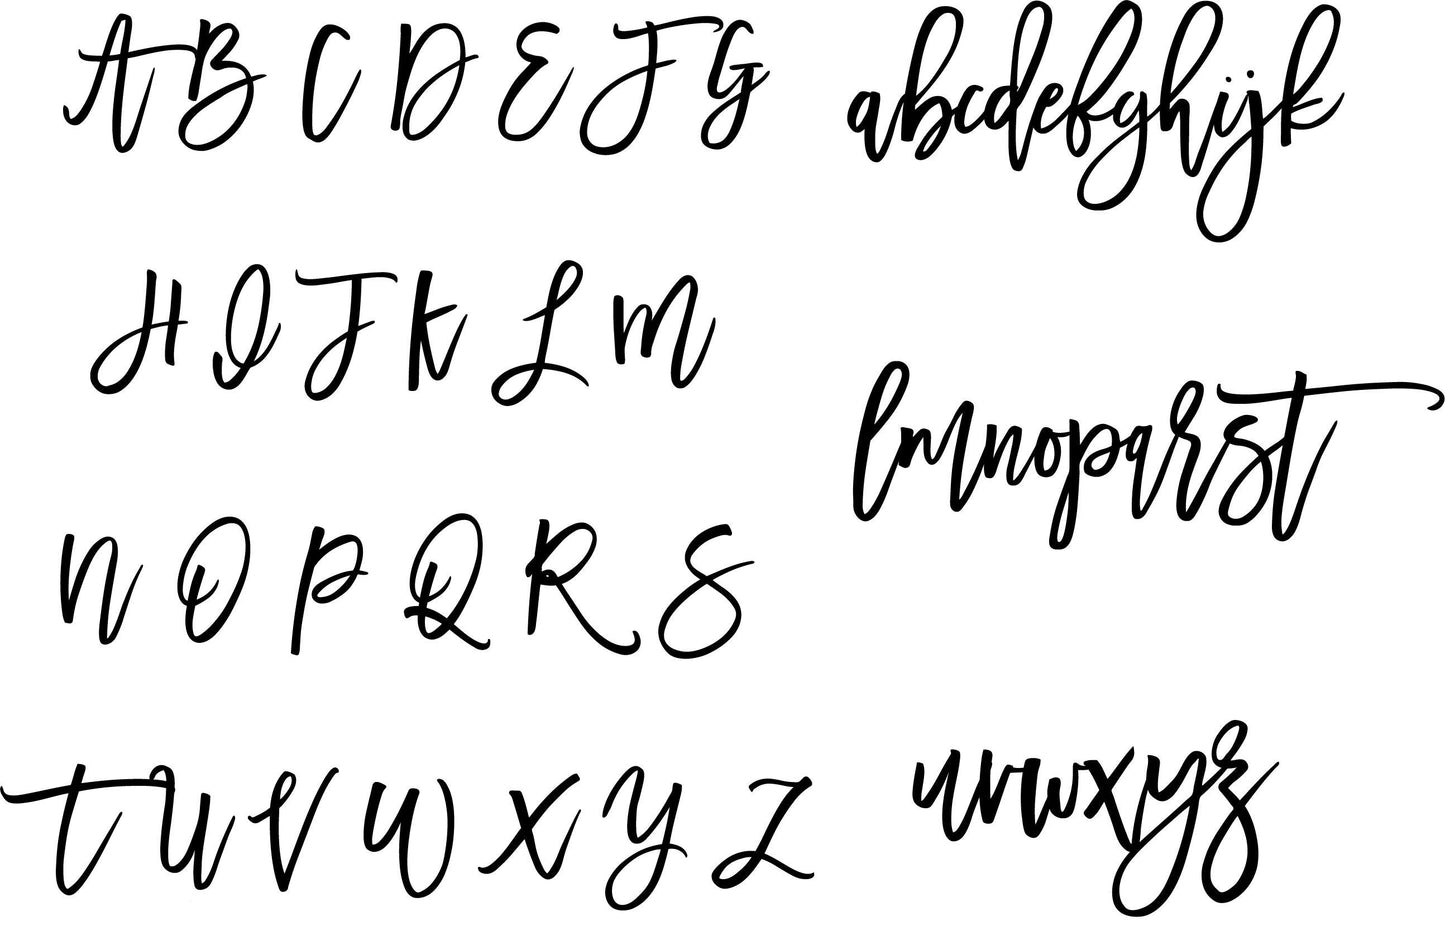 A B C D E F G
H I J K L M
N O P Q R S
T U V W X Y Z
abcdefghijk
lmnopqrst
uvwxyz